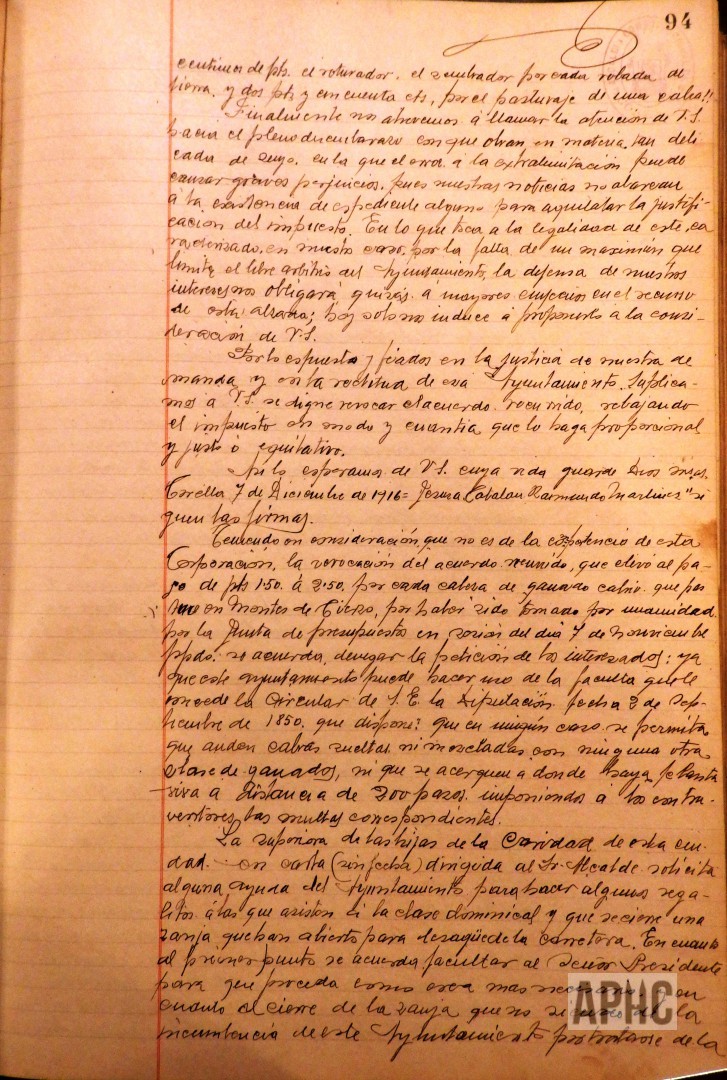 94
centimos de pts. el roturador, el sembrador por cada robada de
tierra, y dos pts y cincuenta cts, por el pasturaje de una cabra!!
Finalmente nos atrevemos á llamar la atención de V.S.
hacia el pleno desembarazo con que obran, en materia tan deli
cada de suyo, en la que el error á la extralimitación puede
causar graves perjuicios, pues nuestras noticias no abarcan
á la existencia de espediente alguno para aquilatar la justifi
cación del impuesto. En lo que toca a la legalidad de este, ca
racterizado, en nuestro caso, por la falta de un maximun que
limite el libre arbitrio del Ayuntamiento, la defensa de nuestros
intereses nos obligará, quizás, á mayores en el recurso
de esta alzada; hoy solo nos induce á proponerlo a la consi-
deración de V.S.
Por lo espuesto y fiados en la justicia de nuestra de
manda y en la rectitud de ese Ayuntamiento, Suplica-
mos a V.S. se digne revocar el acuerdo recurrido, rebajando
el impuesto en modo y cuantia que lo haga proporcional
y justo ó equitativo.
Asi lo esperamos de V.S. cuya vida guarde Dios m. as.
Corella 7 de Diciembre de 1916= Catalan Raimundo Martinez "si
guen las firmas.
Teniendo en consideración que no es de la competencia de esta
Corporación, la revocación del acuerdo, que elevó el pa-
go de pts 1.50 á 2.50 por cada cabeza de ganado cabrio que pas
ture en Montes de Cierzo, por haber sido tomado por unanimidad
por la Junta de presupuestos en sesión del dia 7 de Noviembre
ppdo. se acuerda, denegar la petición de los interesados; ya
que este ayuntamiento puede hacer uso de la faculta que le
concede la Circular de S.E. la Diputación fecha 3 de Sep-
tiembre de 1850, que dispone: que en ningún caso se permita
que anden cabras sueltas ni mezcladas con ninguna otra
clase de ganados, ni que se acerquen a donde haya planta
viva a distancia de 200 pasos, imponiendo á los contra-
ventores las multas correspondientes.
La superiora de las hijas de la Caridad de esta ciu-
dad, en carta (sin fecha) dirigida al Sr. Alcalde solicita
alguna ayuda del Ayuntamiento para hacer algunos rega-
litos á las que asisten á la clase dominical y que se cierre una
zanja que han abierto para desagüe de la carretera. En cuanto
al primer punto se acuerda facultar al Señor Presidente
para que proceda como crea mas y en
cuanto al cierre de la zanja que no es de la
incumbencia de este Ayuntamiento por tratarse de la
APHC